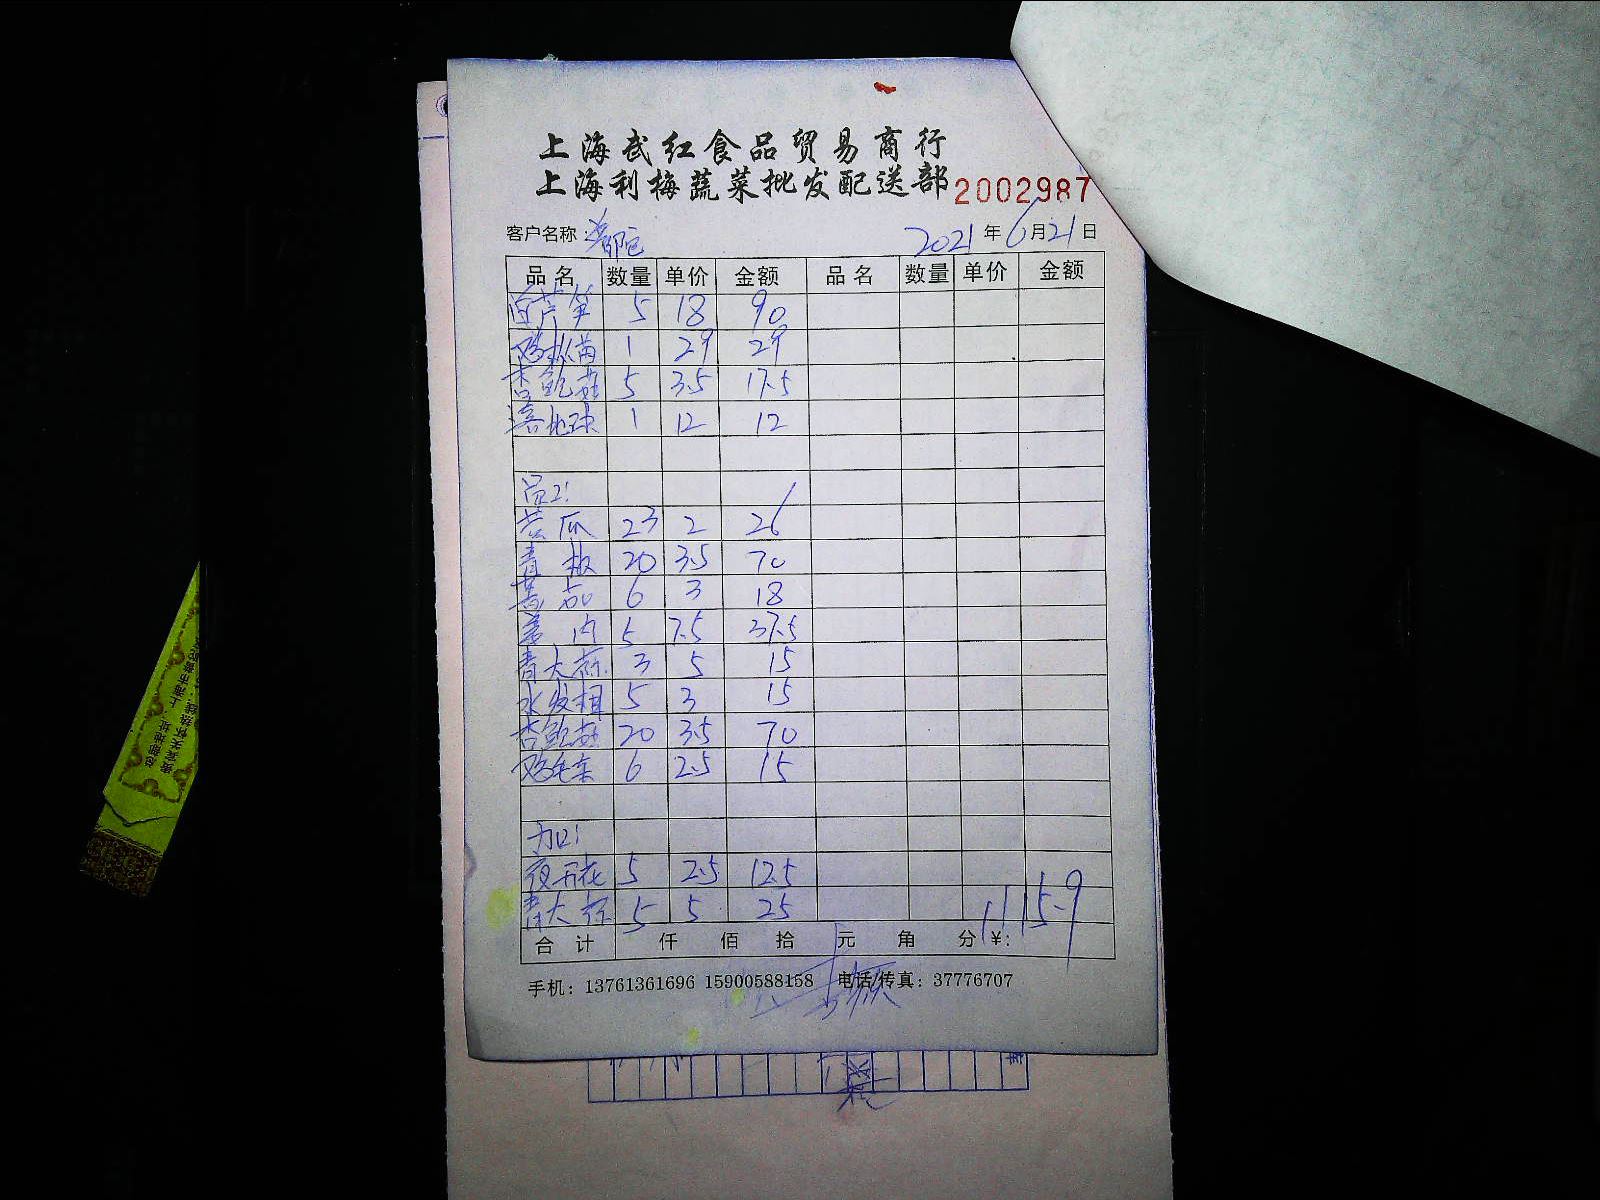 上海武红食品贸易商行
上海利梅蔬菜批发配送部 2002987
客户名称： 2021年6月21日
品名 数量 单价 金额 品名 数量 单价 金额
白芦笋 5 18 90
鸡枞菌 1 29 29
杏鲍菇 5 3.5 17.5
1 12 12
员工:
苦瓜 23 2 26
青椒 20 3.5 70
蕃茄 6 3 18
姜肉 5 7.5 37.5
青大蒜 3 5 15
水发 5 3 15
杏鲍菇 20 3.5 70
鸡毛菜 6 2.5 15
加:
夜开花 5 2.5 12.5
青大蒜 5 5 25
合计 仟 佰 拾 元 角 分 ¥: 1115.9
手机：13761361696 15900588158 电话/传真：37776707